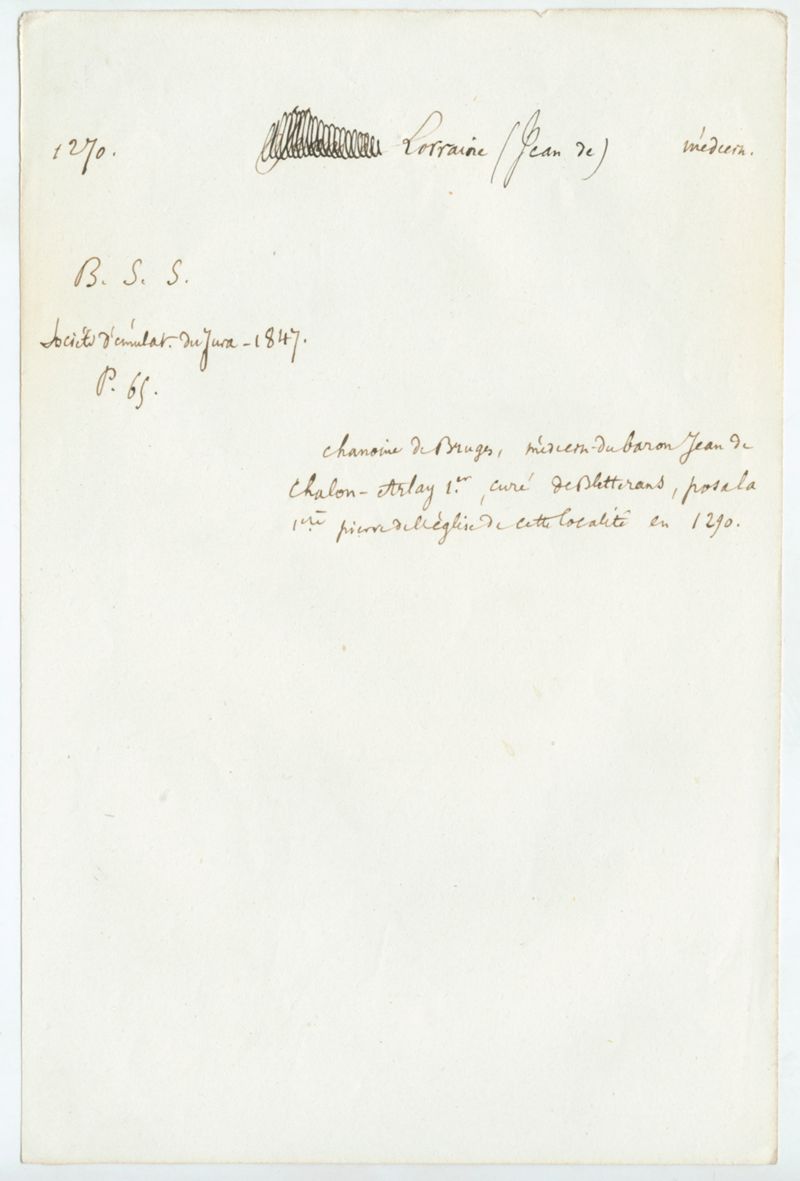 1270. Lorraine (Jean de) médecin.
B. S. S.
Société d'émulat. du Jura - 1847.
P. 65.
chanoine de Bruges, médecin du baron Jean de
Chalon-Arlay 1.er, curé de Bletterans, posa la
1ère pierre de l'église de cette localité en 1290.